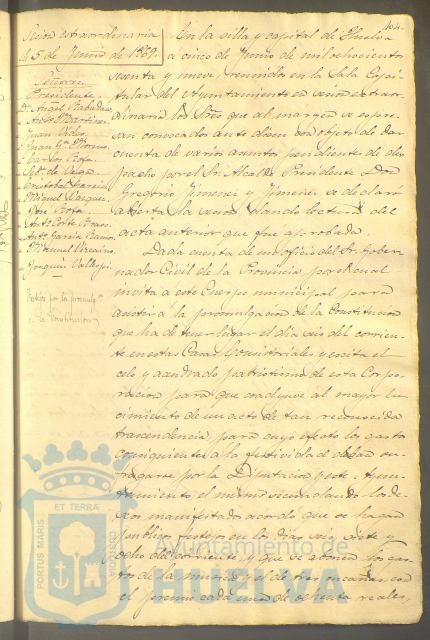 104.
Sesion extraordinaria
del 5 de Junio de 1869.
Señores
Presidente.
D. Angel Rabadan
" Anto. Martinez
" Juan
" Juan
" Carlos Rofa
" Seb. de Vega
" Cristobal Garcia
" Miguel Vazquez
" Jose Rofa
" Anto. Corte Bravo
" Anto. Garcia Ramos
" Manuel Vizcaino
" Joaquin Vallejo
Festejos por la promulgn.
de la Constitucion
En la villa y capital de Huelva
á cinco de Junio de mil ochocientos
sesenta y nueve, reunidos en la Sala Capi-
tular del Ayuntamiento en sesion extraor-
dinaria los Sres. que al margen se espre-
san convocados ante diem con objeto de dar
cuenta de varios asuntos pendientes de des-
pacho por el Sr. Alcalde Presidente Don
Gregorio Jimenez y Jimenez se declaró
abierta la sesion dando lectura del
acta anterior que fue aprobada.
Dada cuenta de un oficio del Sr. Gober-
nador Civil de la Provincia por el cual
invita á este Cuerpo municipal para
asistir á la promulgacion de la Constitucion
que ha de tener lugar el dia seis del corrien-
te en estas Casas Consistoriales y escita el
celo y acendrado patriotismo de esta Corpo-
racion para que coadyuve al mayor lu-
cimiento de un acto de tan reconocida
trascendencia, para cuyo efecto los gastos
consiguientes á la festividad deban su-
fragarse por la Diputacion y este Ayun-
tamiento, el mismo secundando los de-
seos manifestados acordó que se hagan
publicos festejos en los dias seis, siete y
ocho del corriente y que se abonen los gas-
tos de la musica y el de tres cucañas con
el premio cada una de ochenta reales,
PORTUS MARIS ET TERRÆ CUSTODIA
Ayuntamiento de
HUELVA